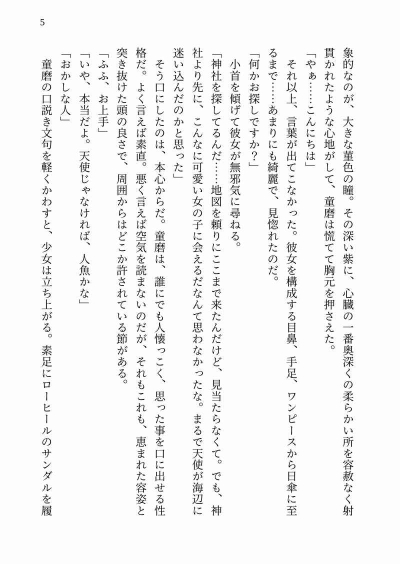 5
象的なのが、大きな菫色の瞳。その深い紫に、心臓の一番奥深くの柔らかい所を容赦なく射
貫かれたような心地がして、童磨は慌てて胸元を押さえた。
「やぁ……こんにちは」
それ以上、言葉が出てこなかった。彼女を構成する目鼻、手足、ワンピースから日傘に至
るまで……あまりにも綺麗で、見惚れたのだ。
「何かお探しですか？」
小首を傾げて彼女が無邪気に尋ねる。
「神社を探してるんだ……地図を頼りにここまで来たんだけど、見当たらなくて。でも、神
社より先に、こんなに可愛い女の子に会えるだなんて思わなかったな。まるで天使が海辺に
迷い込んだのかと思った」
そう口にしたのは、本心からだ。童磨は、誰にでも人懐っこく、思った事を口に出せる性
格だ。よく言えば素直。悪く言えば空気を読まないのだが、それもこれも、恵まれた容姿と
突き抜けた頭の良さで、周囲からはどこか許されている節がある。
「ふふ、お上手」
「いや、本当だよ。天使じゃなければ、人魚かな」
「おかしな人」
童磨の口説き文句を軽くかわすと、少女は立ち上がる。素足にローヒールのサンダルを履